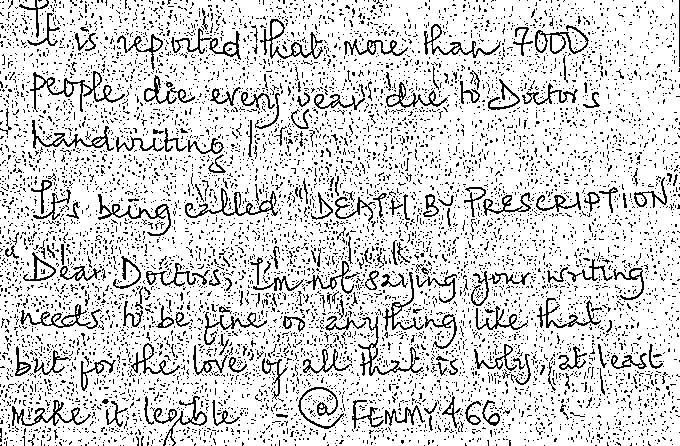 It is reported that more than 7000
people die every year due to Doctor's
handwriting!
It's being called "DEATH BY PRESCRIPTION"
"Dear Doctors, I'm not saying your writing
needs to be fine or anything like that,
but for the love of all that is holy, at least
make it legible - @FEMMY466